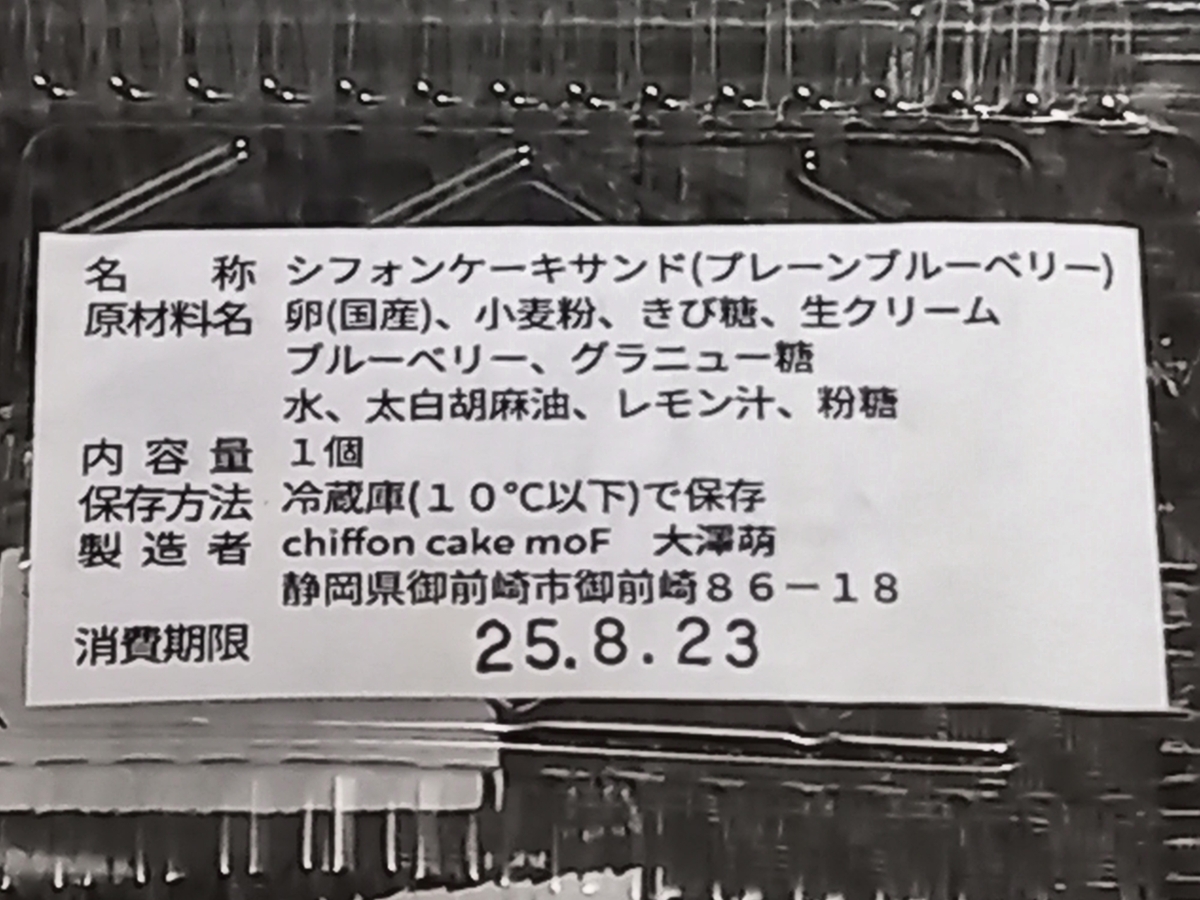 名　　称 シフォンケーキサンド(プレーンブルーベリー)
原材料名 卵(国産)、小麦粉、きび糖、生クリーム
ブルーベリー、グラニュー糖
水、太白胡麻油、レモン汁、粉糖
内 容 量 １個
保存方法 冷蔵庫(１０℃以下)で保存
製 造 者 chiffon cake moF　大澤萌
静岡県御前崎市御前崎８６－１８
消費期限 25.8.23